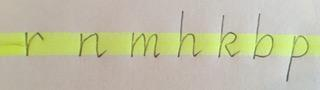 r n m h k b p